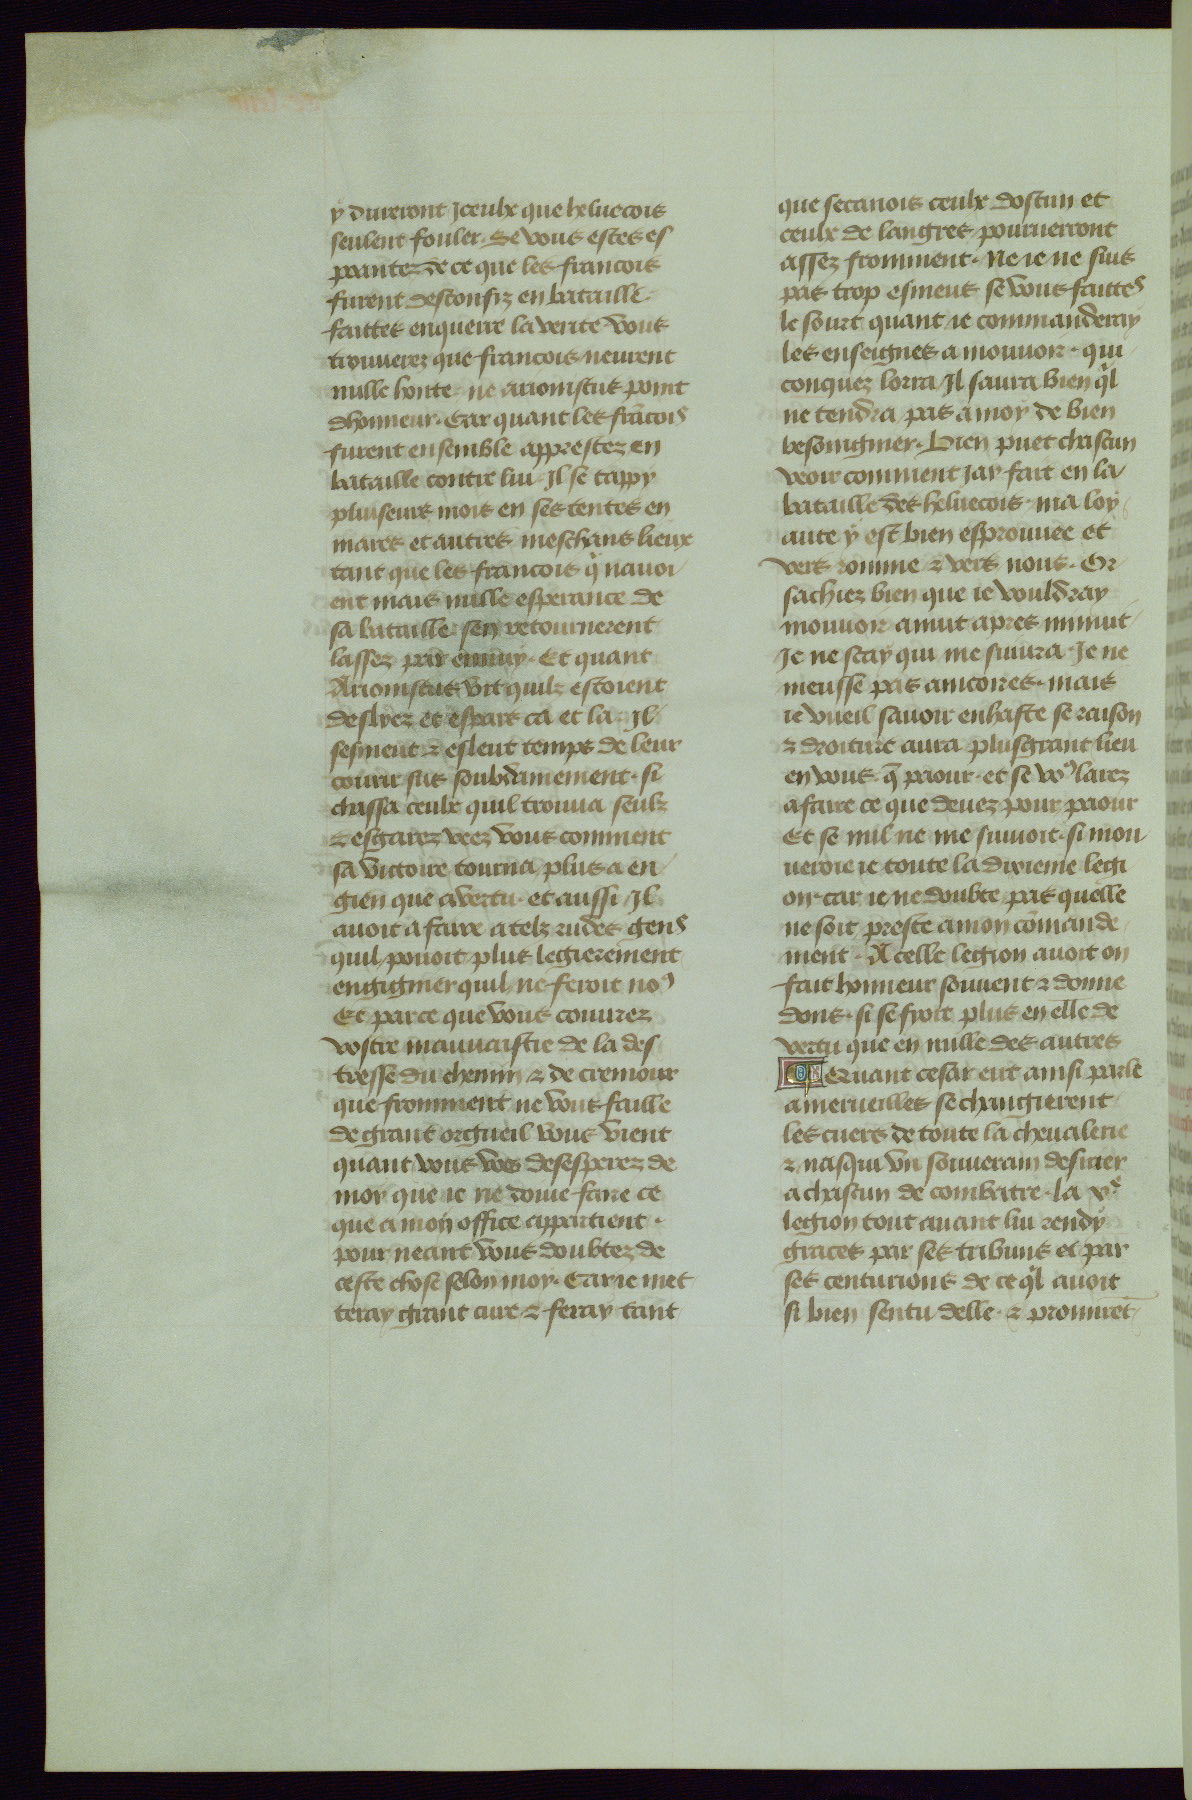 y dureront Iceulx que heluecois
seulent fouler. Se vous estes es
pantez de ce que les francois
furent desconfiz en bataille
faittes enquerre la verite vous
trouuerez que francois neurent
nulle honte ne arionistus point
dhonneur. Car quant les frācois
furent ensemble apprestez en
bataille contre lui. Il se tappy
pluiseurs mois en ses tentes en
mares et autres meschans lieux
tant que les francois q̄ nauoi
ent mais nulle esperance de
sa bataille sen retournerent
lassez par ennuy. Et quant
Arionistus vit quilz estoient
deslyez et espars ca et la. Il
sesment ⁊ esleut temps de leur
courir sus soubdainement. si
chassa ceulx quil trouua seulz
⁊ esgarez veez vous comment
sa victoire tourna plus a en
gien que a vertu. et aussi Il
auoit a faire a telz rudes gens
quil pouoit plus legierement
engignier quil ne feroit noꝰ
Et parce que vous couurez
vostre mauuaistie de la des
tresse du chemin ⁊ de cremour
que fromment ne vous faille
de grant orgueil vous vient
quant vous vous desesperez de
moy que ie ne doiue faire ce
que a mon office appartient.
pour neant vous doubtez de
ceste chose selon moy. Car ie met
teray grant cure ⁊ feray tant
que secanois ceulx dostun et
ceulx de langres pourverront
assez fromment. Ne ie ne suis
pas trop esmeus se vous faittes
le sourt quant ie commanderay
les enseignes a mouuoir. qui
conquez lorra Il saura bien q̄l
ne tendra pas a moy de bien
besoingnier. Bien puet chascun
veoir comment Jay fait en la
bataille des heluecois. ma loy
aute y est bien esprouuee et
vers romme ⁊ vers nous. Or
sachiez bien que ie vouldray
mouuoir a nuit apres minuit
Je ne scay qui me suiura. Je ne
meusse pas ancoires. mais
ie vueil sauoir en haste se raison
⁊ droiture aura plusgrant lieu
en vous. q̄ paour. et se voꝰ larez
a faire ce que deuez pour paour
Et se nul ne me suiuoit. si mou
ueroie ie toute la dixieme legi
on. car ie ne doubte pas quelle
ne soit preste a mon cōmande
ment. A celle legion auoit on
fait honneur souuent ⁊ donne
dons. si se fyoit plus en elle de
vertu que en nulle des autres
Quant cesar eut ainsi parle
a merueilles se changierent
les cuers de toute la cheualerie
⁊ nasqui vn souuerain desirier
a chascun de combatre. la xᵉ
legion tout auant lui rendy
graces par ses tribuns et par
ses centurions de ce q̄l auoit
si bien sentu delle. ⁊ promirēt